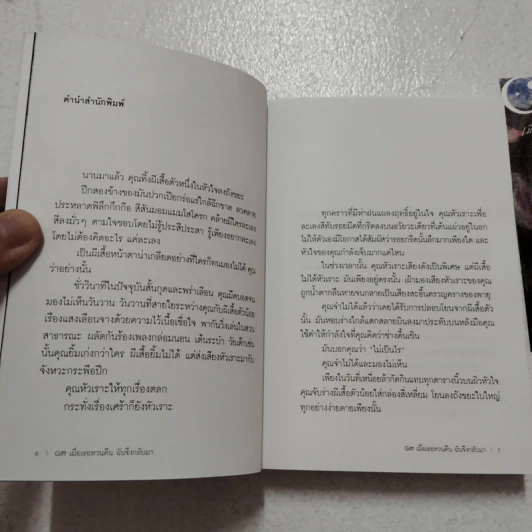 คำนำสำนักพิมพ์
นานมาแล้ว คุณทิ้งผีเสื้อตัวหนึ่งในหัวใจลงถังขยะ
ปีกสองข้างของมันปวกเปียกร่อแร่ใกล้ฉีกขาด ลวดลาย
ประหลาดพิลึกกึกกือ สีสันมอมแมมโสโครก คล้ายมีใครละเลง
สีลงมั่วๆ ตามใจชอบโดยไม่รู้ประสีประสา รู้เพียงอยากละเลง
โดยไม่ต้องคิดอะไร แค่ละเลง
เป็นผีเสื้อหน้าตาน่าเกลียดอย่างที่ใครก็ทนมองไม่ได้ คุณ
ว่าอย่างนั้น
ชั่ววินาทีในปัจจุบันสั้นกุดและพร่าเลือน คุณมืดบอดจน
มองไม่เห็นวันวาน วันวานที่สายใยระหว่างคุณกับผีเสื้อตัวน้อย
เรืองแสงเลือนจางด้วยความไว้เนื้อเชื่อใจ พากันวิ่งเล่นในสวน
สาธารณะ ผลัดกันร้องเพลงกล่อมนอน เต้นระบำ วัยเด็กเช่น
นั้นคุณยิ้มเก่งกว่าใคร ผีเสื้อยิ้มไม่ได้ แต่ส่งเสียงหัวเราะมากับ
จังหวะกระพือปีก
คุณหัวเราะให้ทุกเรื่องตลก
กระทั่งเรื่องเศร้าก็ยังหัวเราะ
6 | เมื่อเธอหวนคืน ฉันจึงกลับมา
ทุกคราวที่มีห่าฝนแผลงฤทธิ์อยู่ในใจ คุณหัวเราะเพื่อ
ละเลงสีทับรอยมีดที่กรีดลงบนอวัยวะเดียวที่เต้นแม่วอยู่ในอก
ไม่ให้ตัวเองมีโอกาสได้สัมผัสว่ารอยกรีดนั้นลึกมากเพียงใด และ
หัวใจของคุณกำลังเจ็บมากแค่ไหน
ในช่วงเวลานั้น คุณหัวเราะเสียงดังเป็นพิเศษ แต่ผีเสื้อ
ไม่ได้หัวเราะ มันเพียงอยู่ตรงนั้น เฝ้ามองเสียงหัวเราะของคุณ
ถูกน้ำตากลืนหายจนกลายเป็นเสียงสะอื้นครวญครางของพายุ
คุณจำไม่ได้แล้วว่าเคยได้รับการปลอบโยนจากผีเสื้อตัว
นั้น มันหอบร่างใกล้แตกสลายบินลงมาประทับบนหลังมือคุณ
ใช้คำให้กำลังใจที่คุณคิดว่าช่างตื้นเขิน
มันบอกคุณว่า "ไม่เป็นไร"
คุณจำไม่ได้และมองไม่เห็น
เพียงในวันที่เหนื่อยล้ากัดกินแทบทุกตารางนิ้วบนผิวหัวใจ
คุณจับร่างผีเสื้อตัวน้อยใส่กล่องสี่เหลี่ยม โยนลงถังขยะใบใหญ่
ทุกอย่างง่ายดายเพียงนั้น
เมื่อเธอหวนคืน ฉันจึงกลับมา | 7